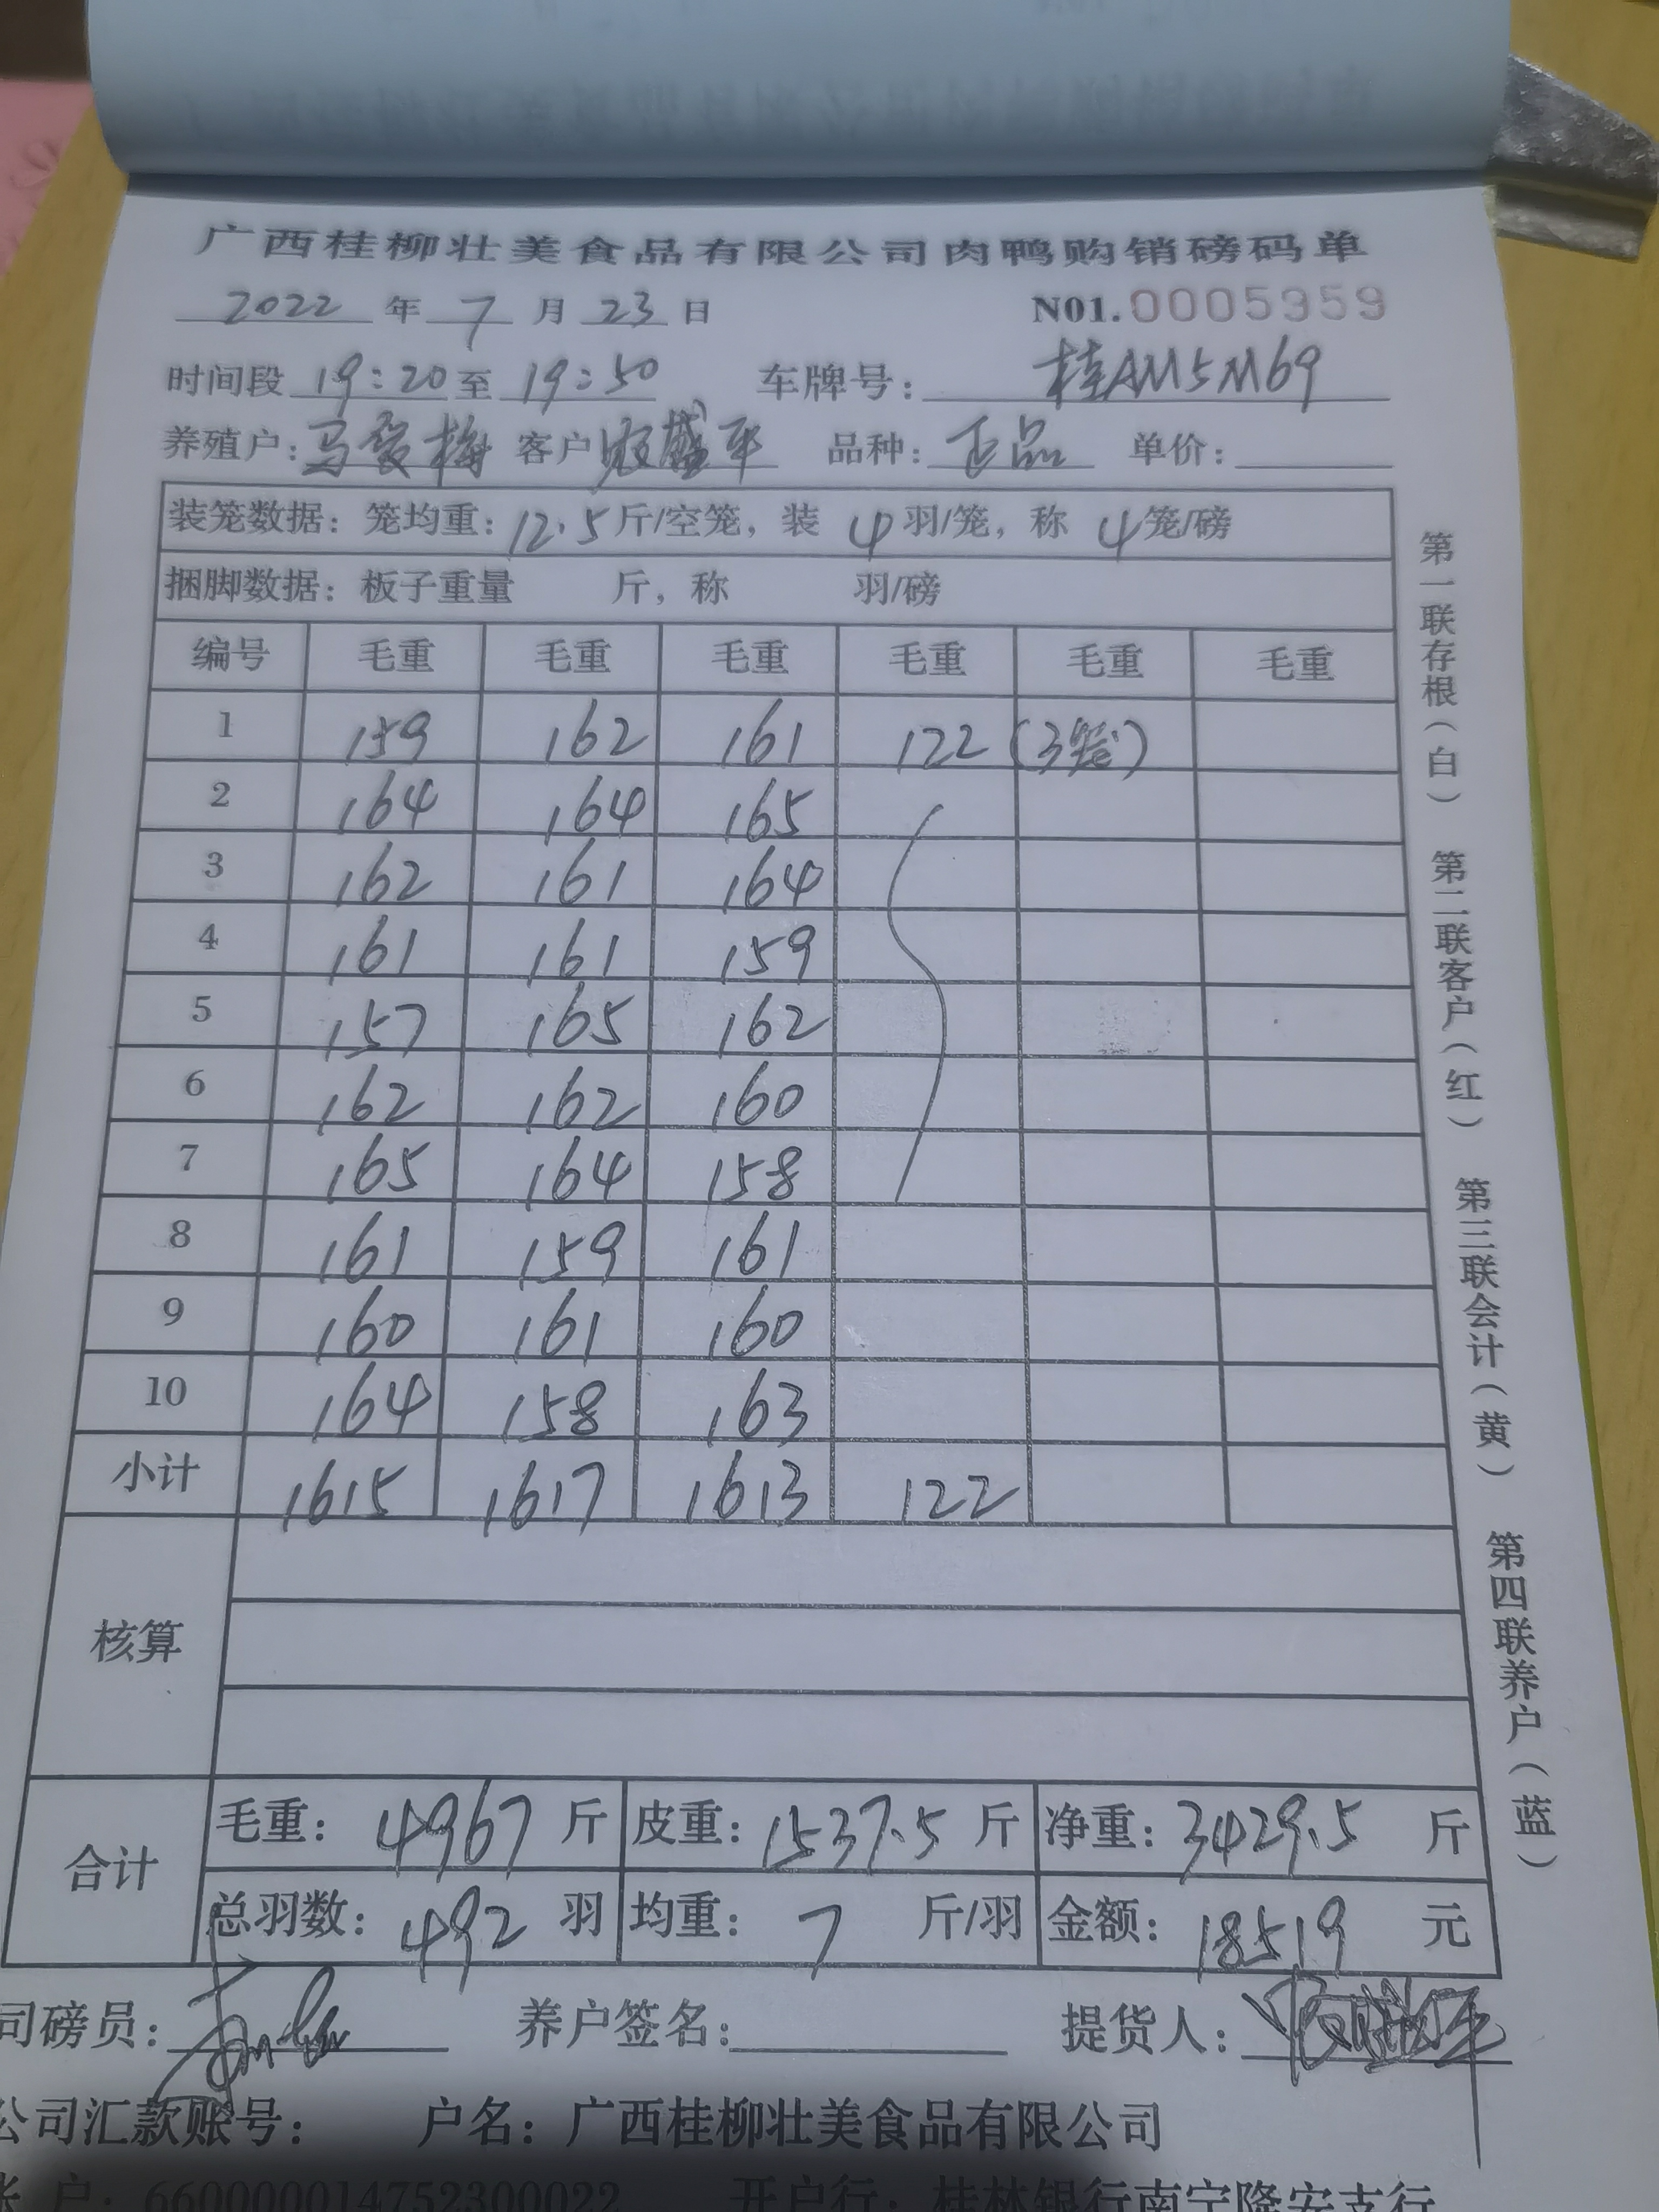 广西桂柳壮美食品有限公司肉鸭购销磅码单
2022 年 7 月 23 日 N01.0005359
时间段 19:20 至 19:50 车牌号: 桂AM5M69
养殖户: 马爱梅 客户 盛平 品种: 正品 单价:
装笼数据: 笼均重: 12.5 斤/空笼, 装 4 羽/笼, 称 4 笼/磅
捆脚数据: 板子重量 斤, 称 羽/磅
编号 毛重 毛重 毛重 毛重 毛重 毛重
1 159 162 161 122 (3笼)
2 164 164 165
3 162 161 164
4 161 161 159
5 157 165 162
6 162 162 160
7 165 164 158
8 161 159 161
9 160 161 160
10 164 158 163
小计 1615 1617 1613 122
核算
合计
毛重: 4967 斤 皮重: 1537.5 斤 净重: 3429.5 斤
总羽数: 492 羽 均重: 7 斤/羽 金额: 18519 元
司磅员: 养户签名: 提货人:
公司汇款账号: 户名: 广西桂柳壮美食品有限公司
账 户: 660000014752300022 开户行: 桂林银行南宁隆安支行
第一联存根(白) 第二联客户(红) 第三联会计(黄) 第四联养户(蓝)